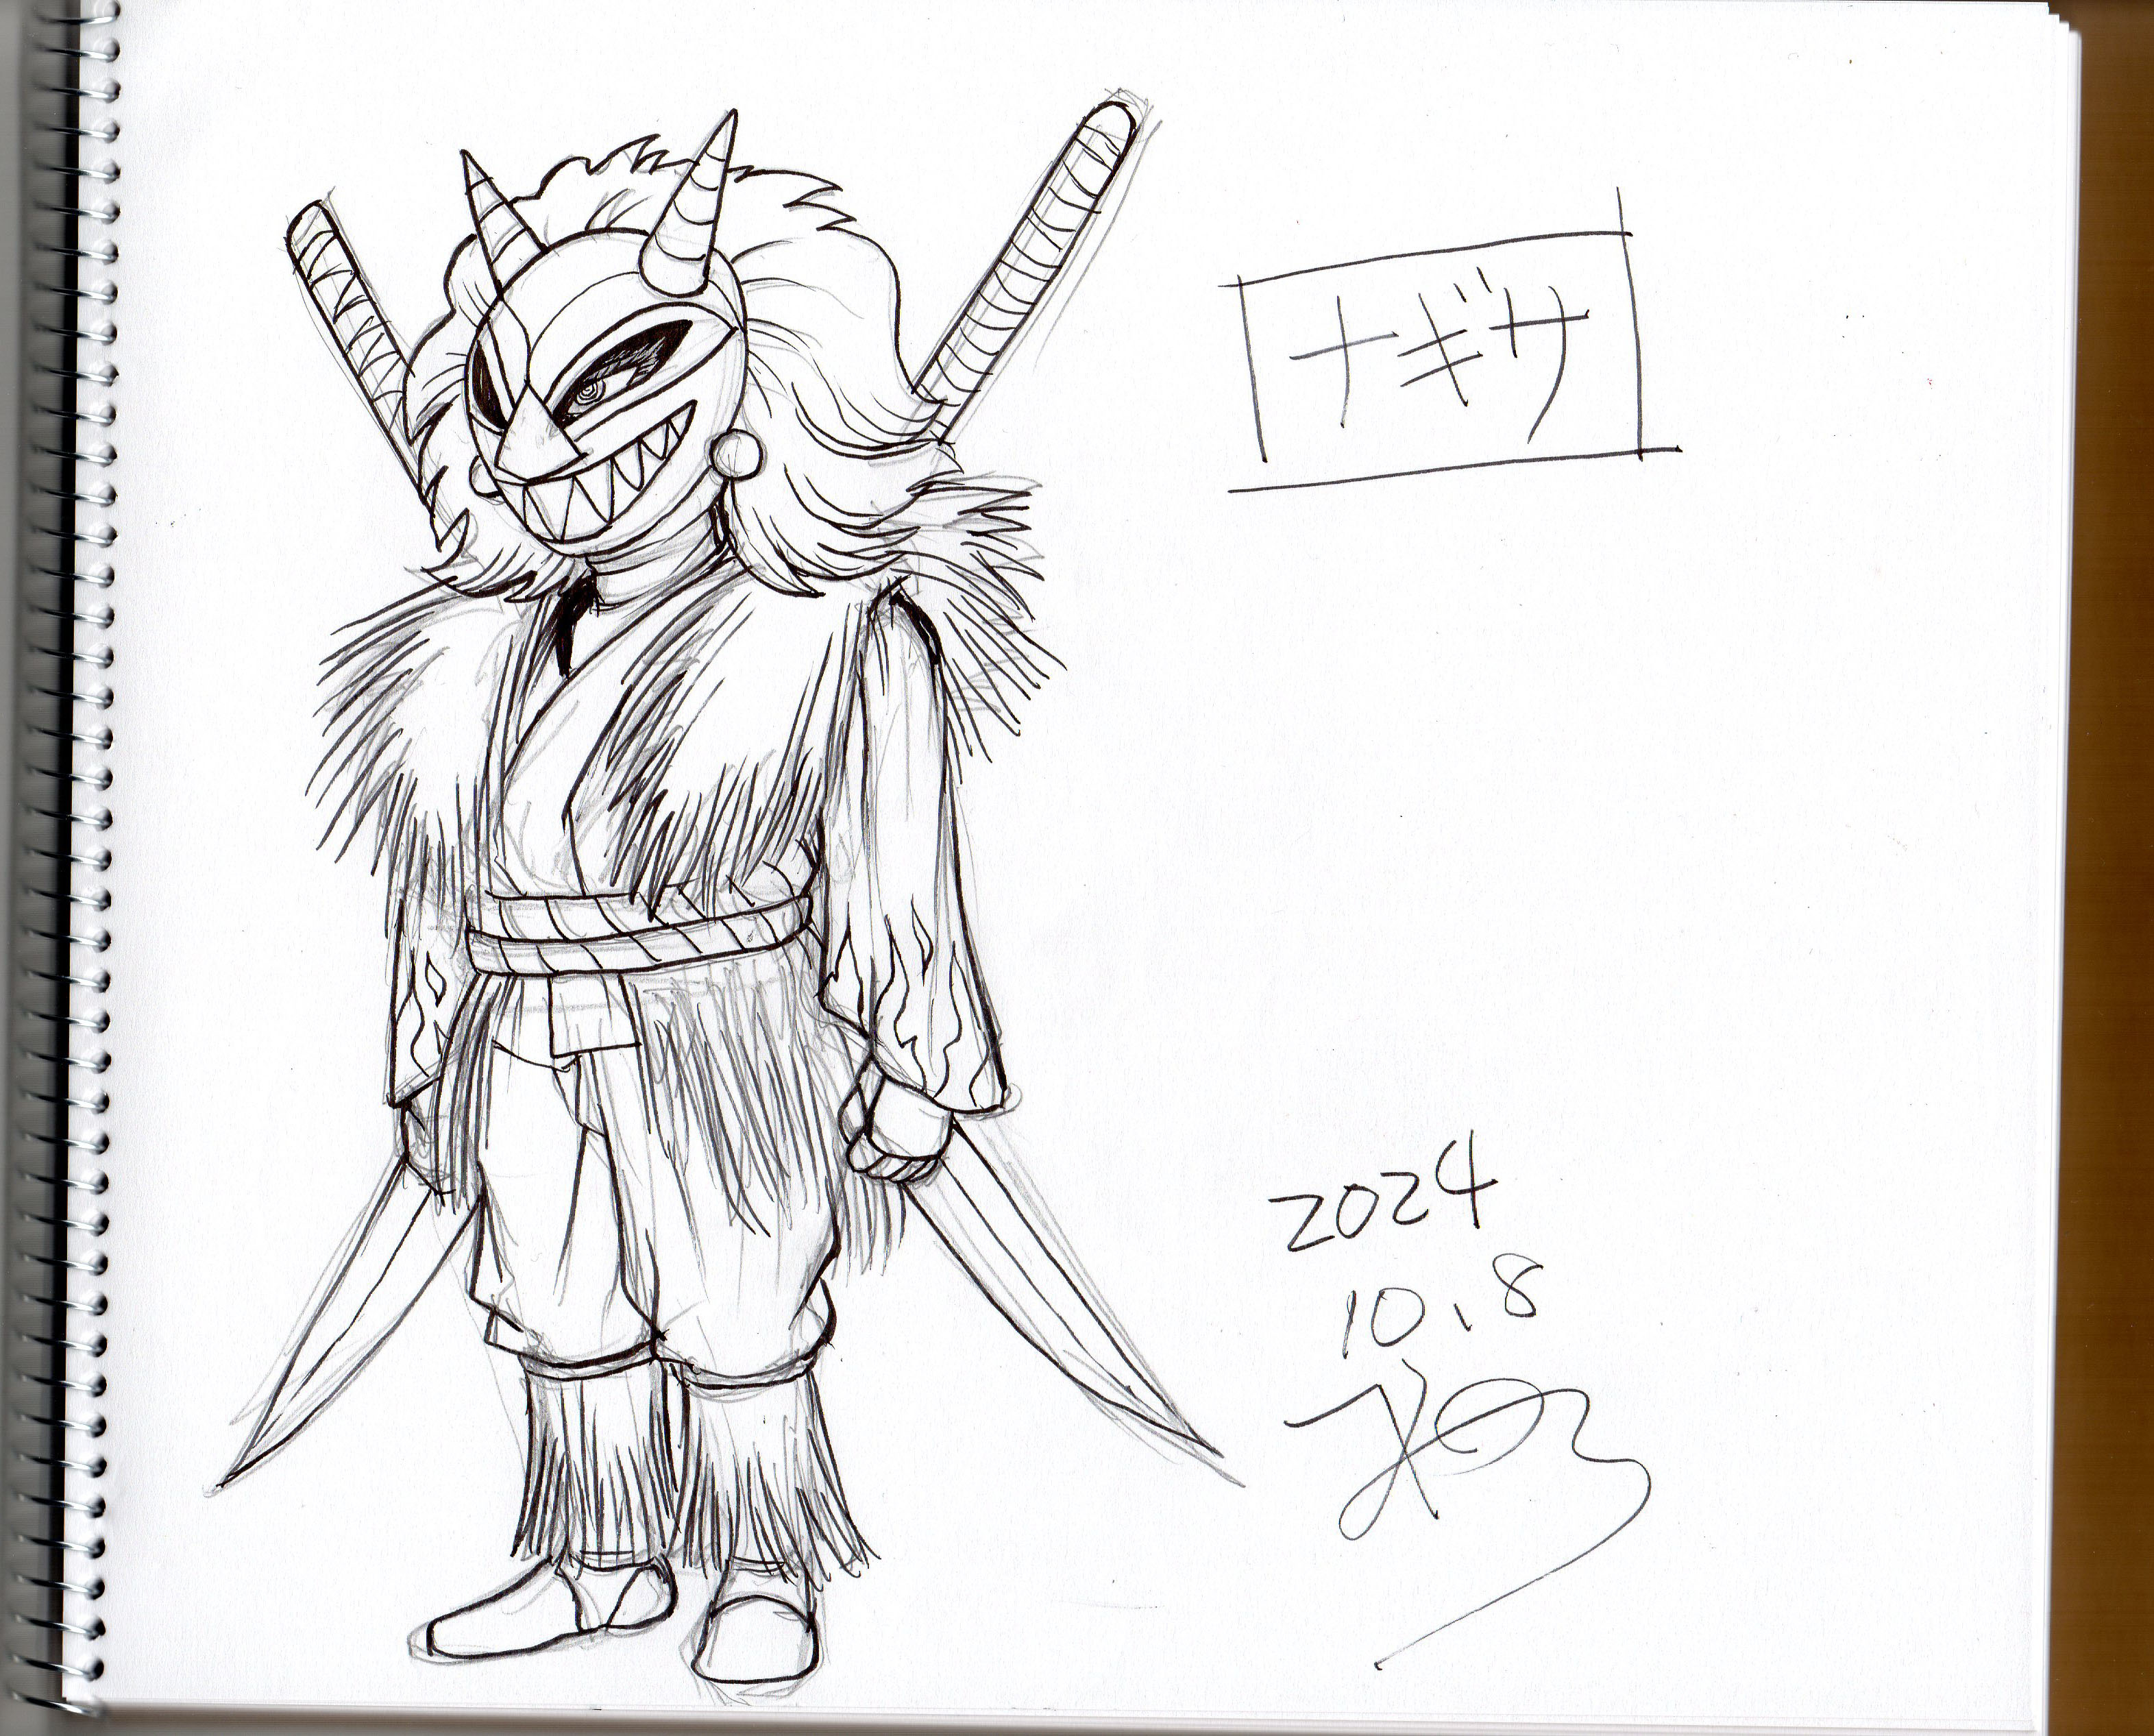 ナギサ
2024
10.8